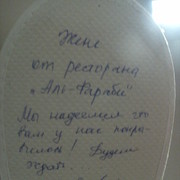 Жене
от ресторана
„Аль-Фараби"
Мы надеемся что
вам у нас понра-
вилось! Будем
ждать